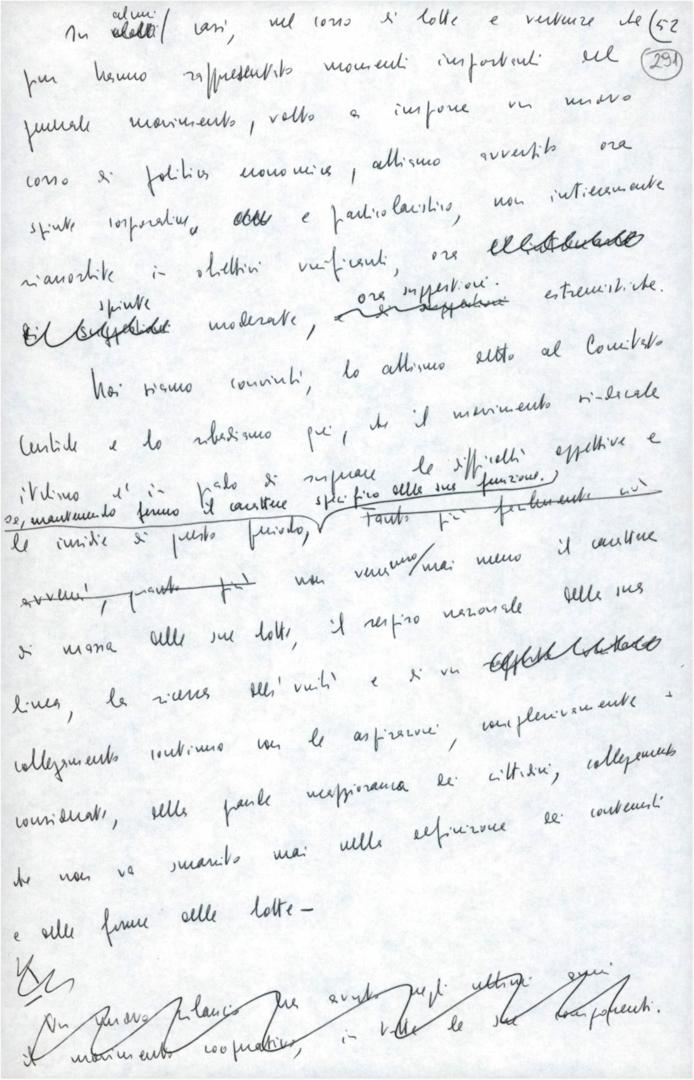 In alcuni casi, nel corso di lotte e vertenze che (52
pur hanno rappresentato momenti importanti del 291
generale movimento, volto a imporre un nuovo
corso di politica economica, abbiamo avvertito ora
spinte corporative e particolaristiche, non interamente
rianodate in obiettivi unificanti, ora
spinte moderate, ora suggestioni estremistiche.
Noi siamo convinti, lo abbiamo detto al Comitato
Centrale e lo ribadiamo qui, che il movimento sindacale
italiano è in grado di superare le difficoltà oggettive e
se, mantenendo fermo il carattere specifico della sua funzione,
le insidie di questo periodo, tanto più facilmente ciò
avverrà, quanto più non verranno mai meno il carattere
di massa delle sue lotte, il respiro nazionale della sua
linea, la ricerca dell'unità e di un
collegamento continuo con le aspirazioni, complessivamente
considerate, della grande maggioranza dei cittadini, collegamento
che non va smarrito mai nella definizione dei contenuti
e delle forme delle lotte —
Un nuovo rilancio ha avuto negli ultimi anni
il movimento cooperativo, in tutte le sue componenti.